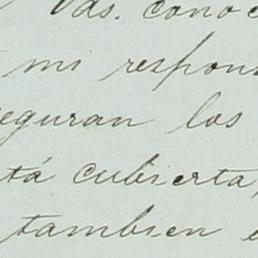 Vds. conoc
mi respon
eguran los
tá cubierta,
tambien e